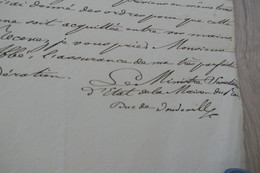 ai donné des ordres pour que cette
me soit acquittée entre vos mains,
Recevez je vous prie, Monsieur
bbé, l'assurance de ma très parfaite
dération.
Le Ministre
d'Etat de la Maison du Roi
Duc de Doudeauville